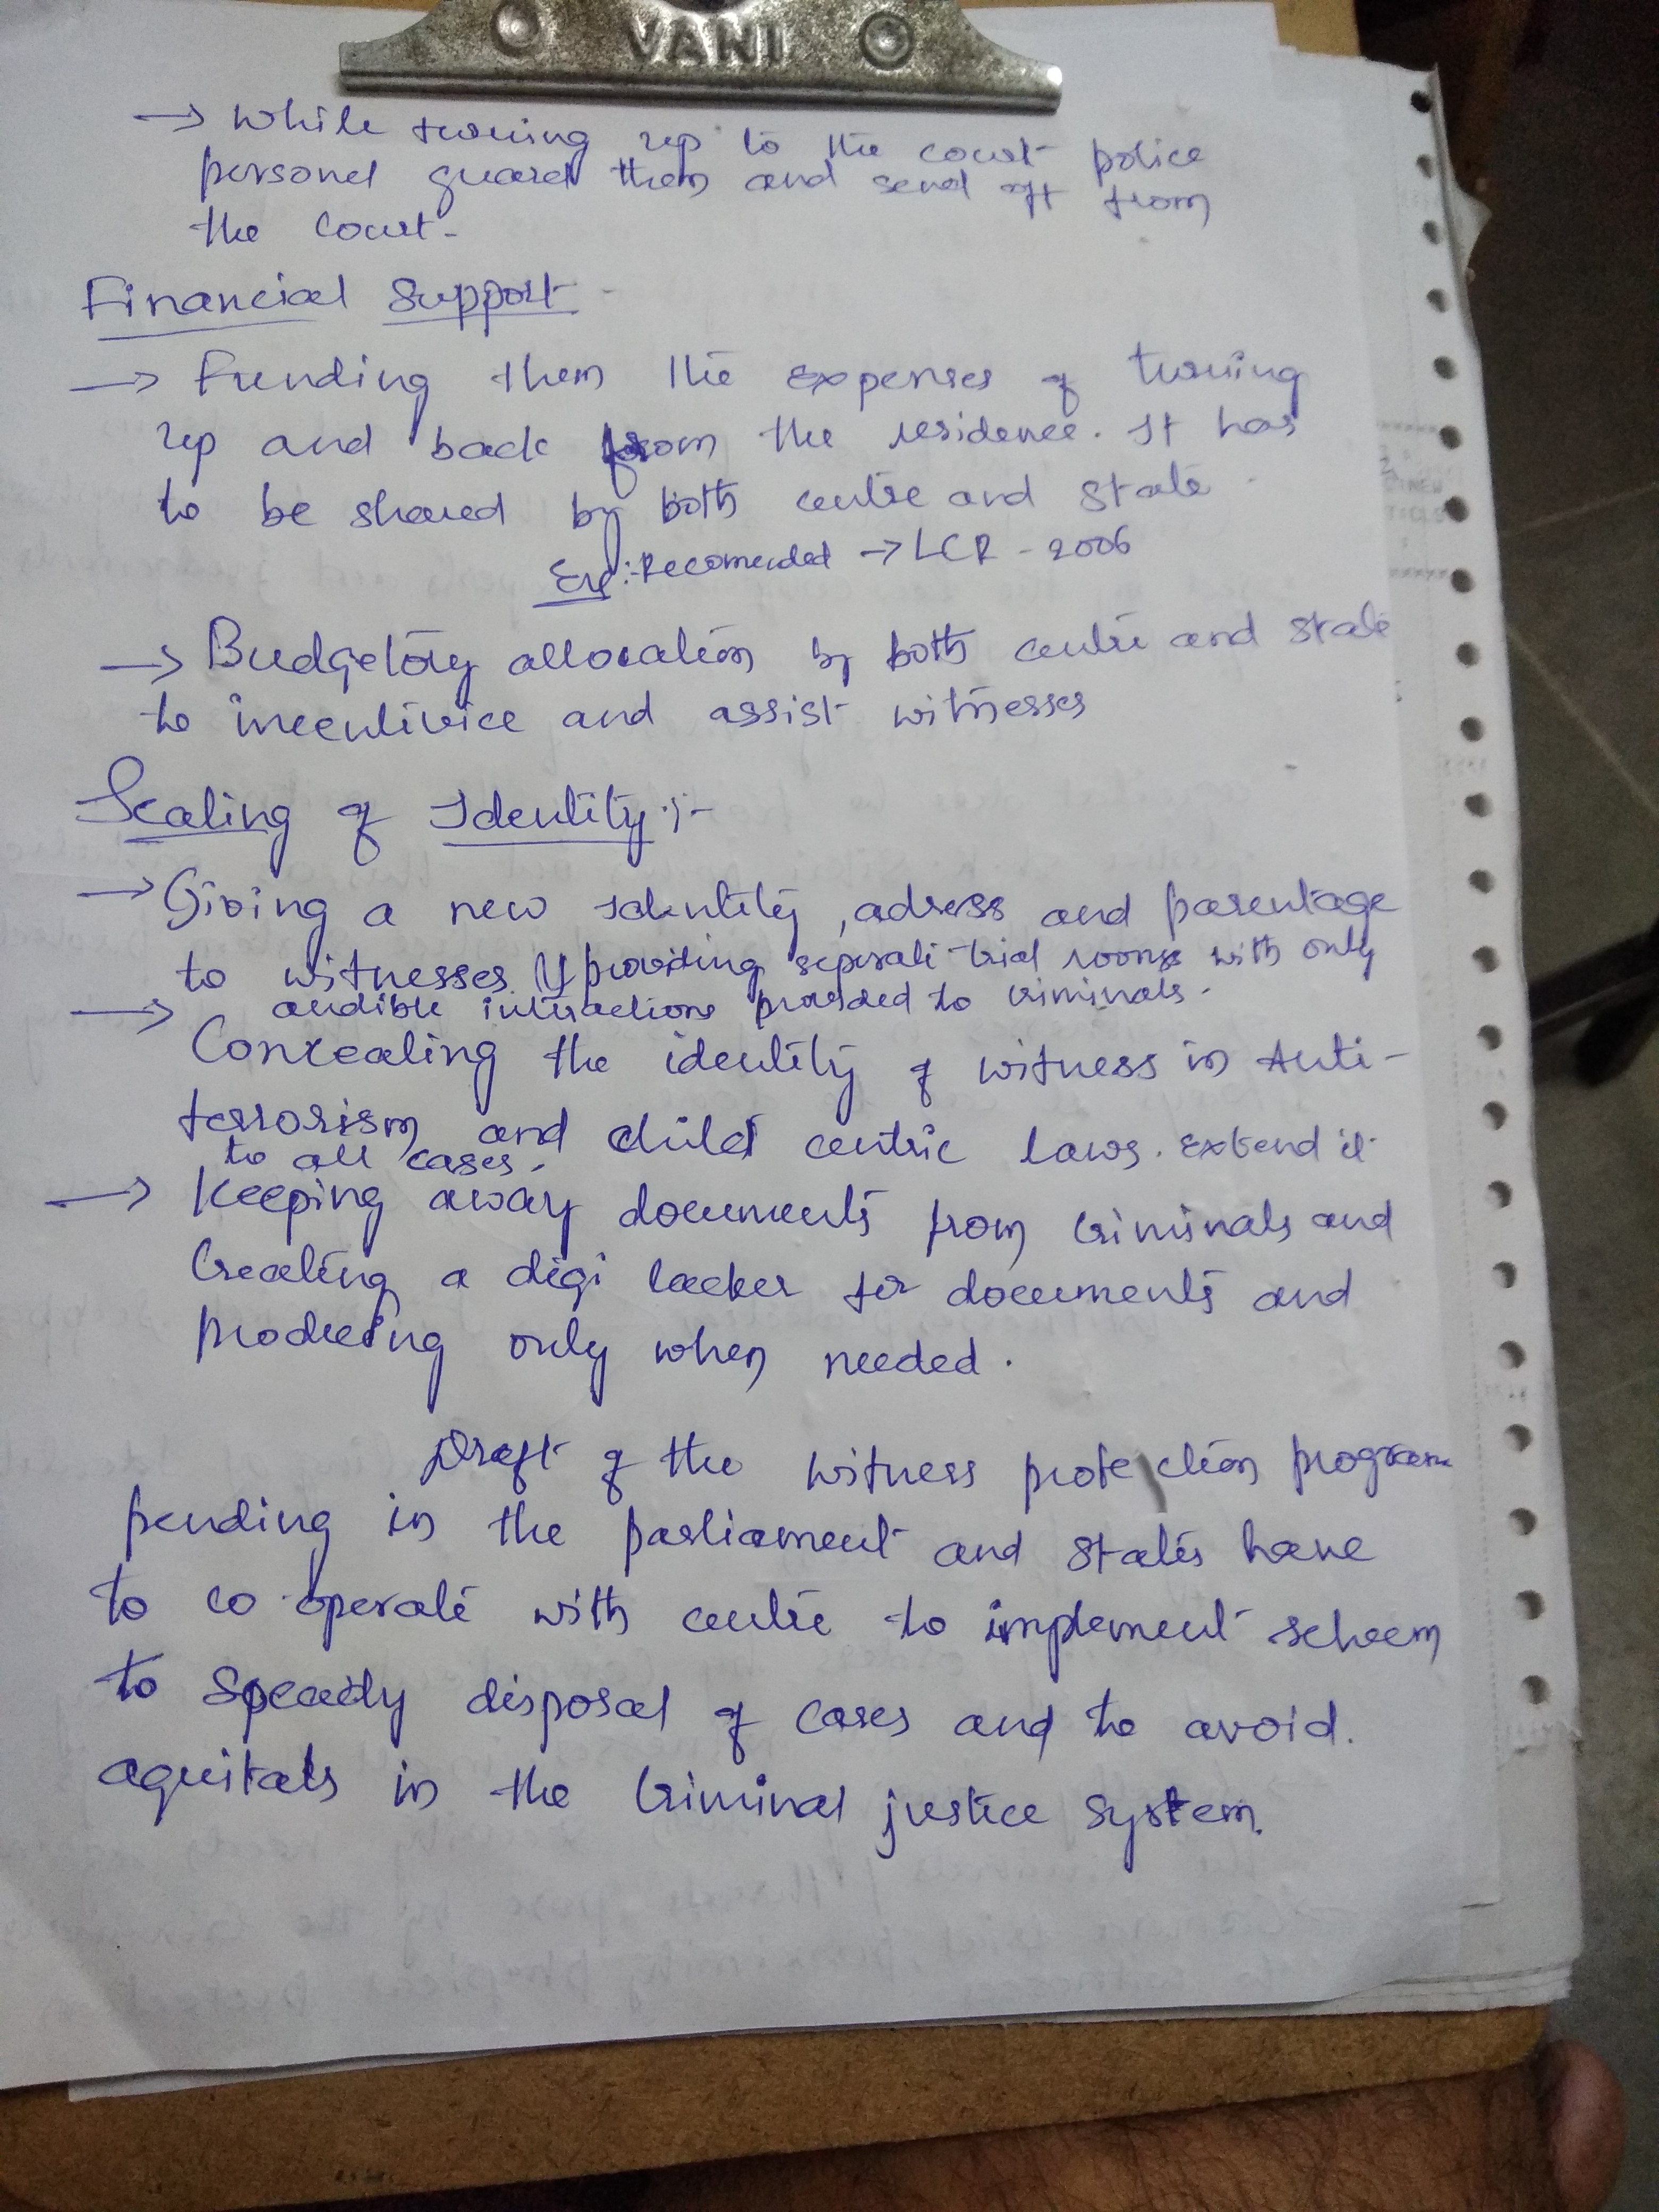 VANI
→ While turning up to the court police
personel guard them and send off from
the court.
Financial Support
→ Funding them the expenses of turning
up and back from the residence. It has
to be shared by both centre and state.
Ex:- Recomended → LCR - 2006
→ Budgetory allocation by both centre and state
to incentivice and assist witnesses
Sealing of Identity:-
→ Giving a new identity, adress and parentage
to witnesses providing seperate trial rooms with only
audible interactions provided to criminals.
→ Concealing the identity of witness in Anti-
terrorism and child centric laws. Extend it
to all cases.
→ Keeping away documents from criminals and
Creating a digi locker for documents and
producing only when needed.
Draft of the witness protection program
pending in the parliament and states have
to co operate with centre to implement scheem
to speady disposal of cases and to avoid.
aquitals in the criminal justice system.